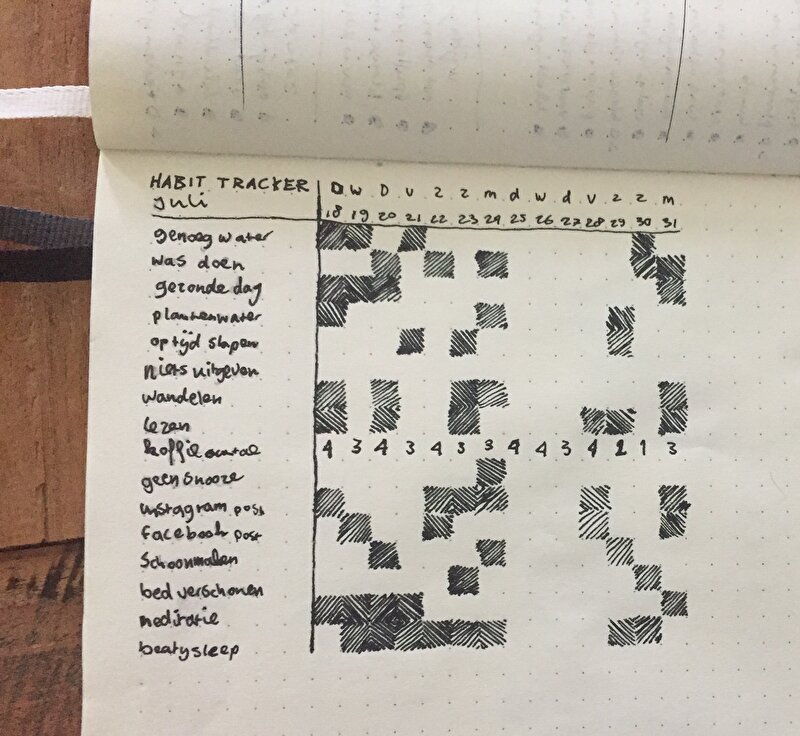 HABIT TRACKER D W D V Z Z m d w d v z z m
juli 18 19 20 21 22 23 24 25 26 27 28 29 30 31
genoeg water
was doen
gezonde dag
planten water
op tijd slapen
niets uitgeven
wandelen
lezen
koffie aantal 4 3 4 3 4 3 3 4 4 3 4 2 1 3
geen snooze
instagram post
facebook post
schoonmaken
bed verschonen
meditatie
beatysleep